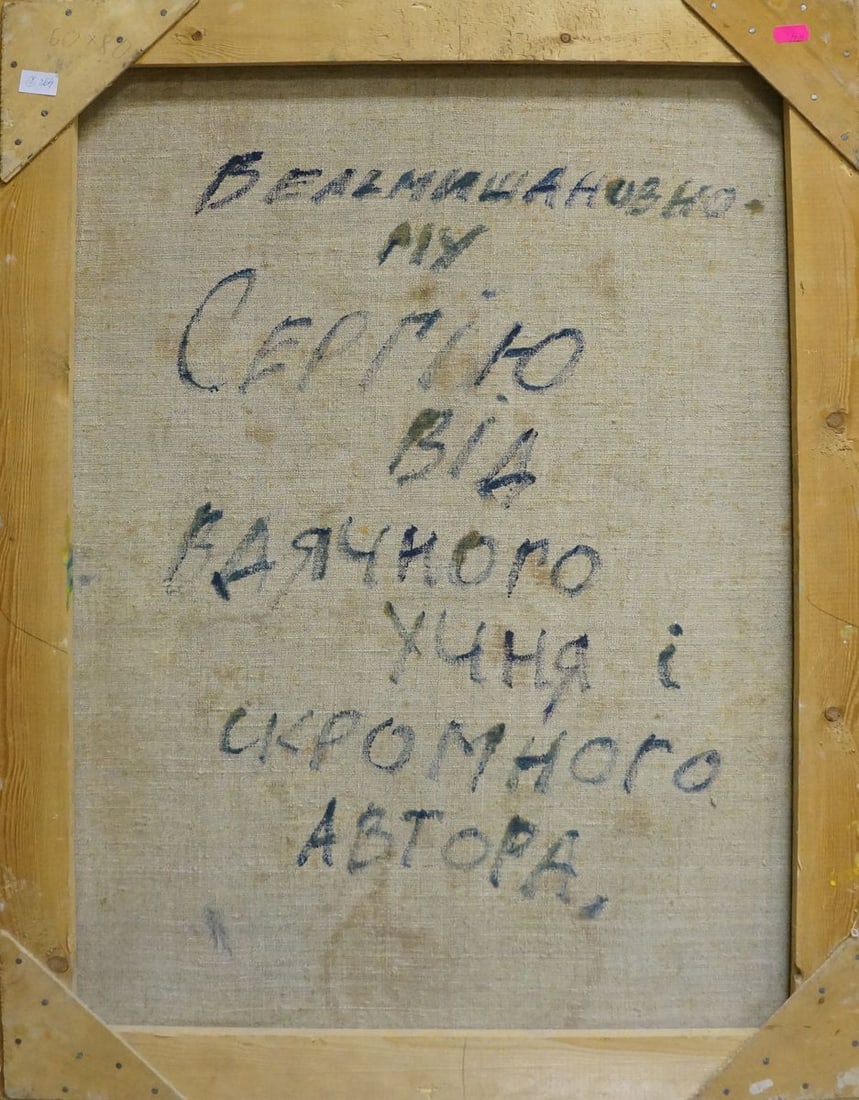 60x8
Вельмишановно-
му
Сергію
від
вдячного
учня і
скромного
автора,